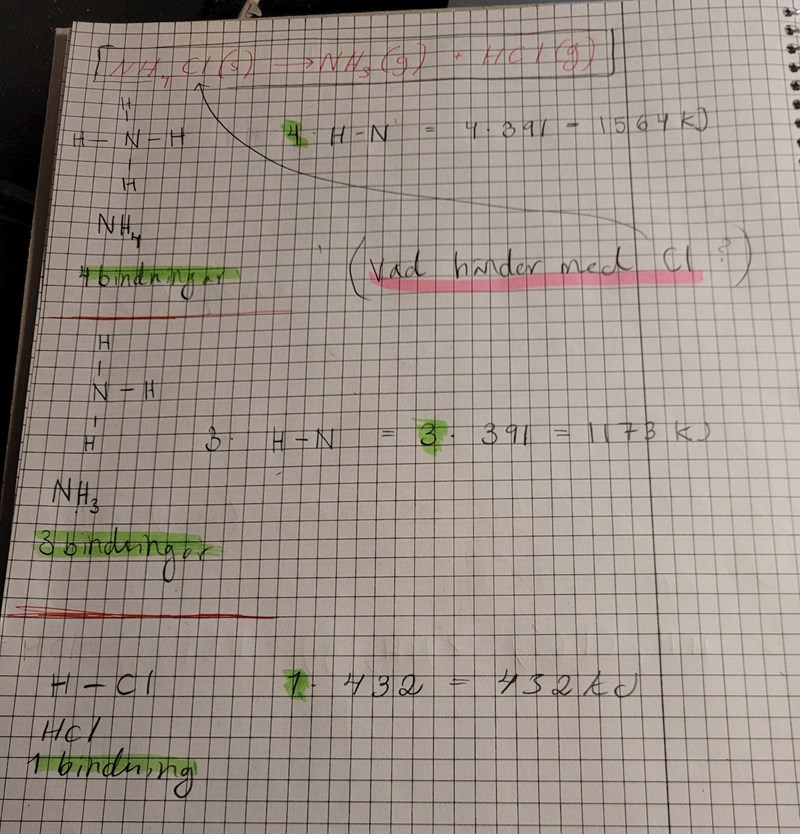 [NH₄Cl(s) → NH₃(g) + HCl(g)]
H
H – N – H
H
4 · H-N = 4·391 = 1564 KJ
NH₄
4 bindningar
(Vad händer med Cl?)
H
N – H
H
3· H-N = 3· 391 = 1173 KJ
NH₃
3 bindningar
H – Cl 1· 432 = 432 kJ
HCl
1 bindning